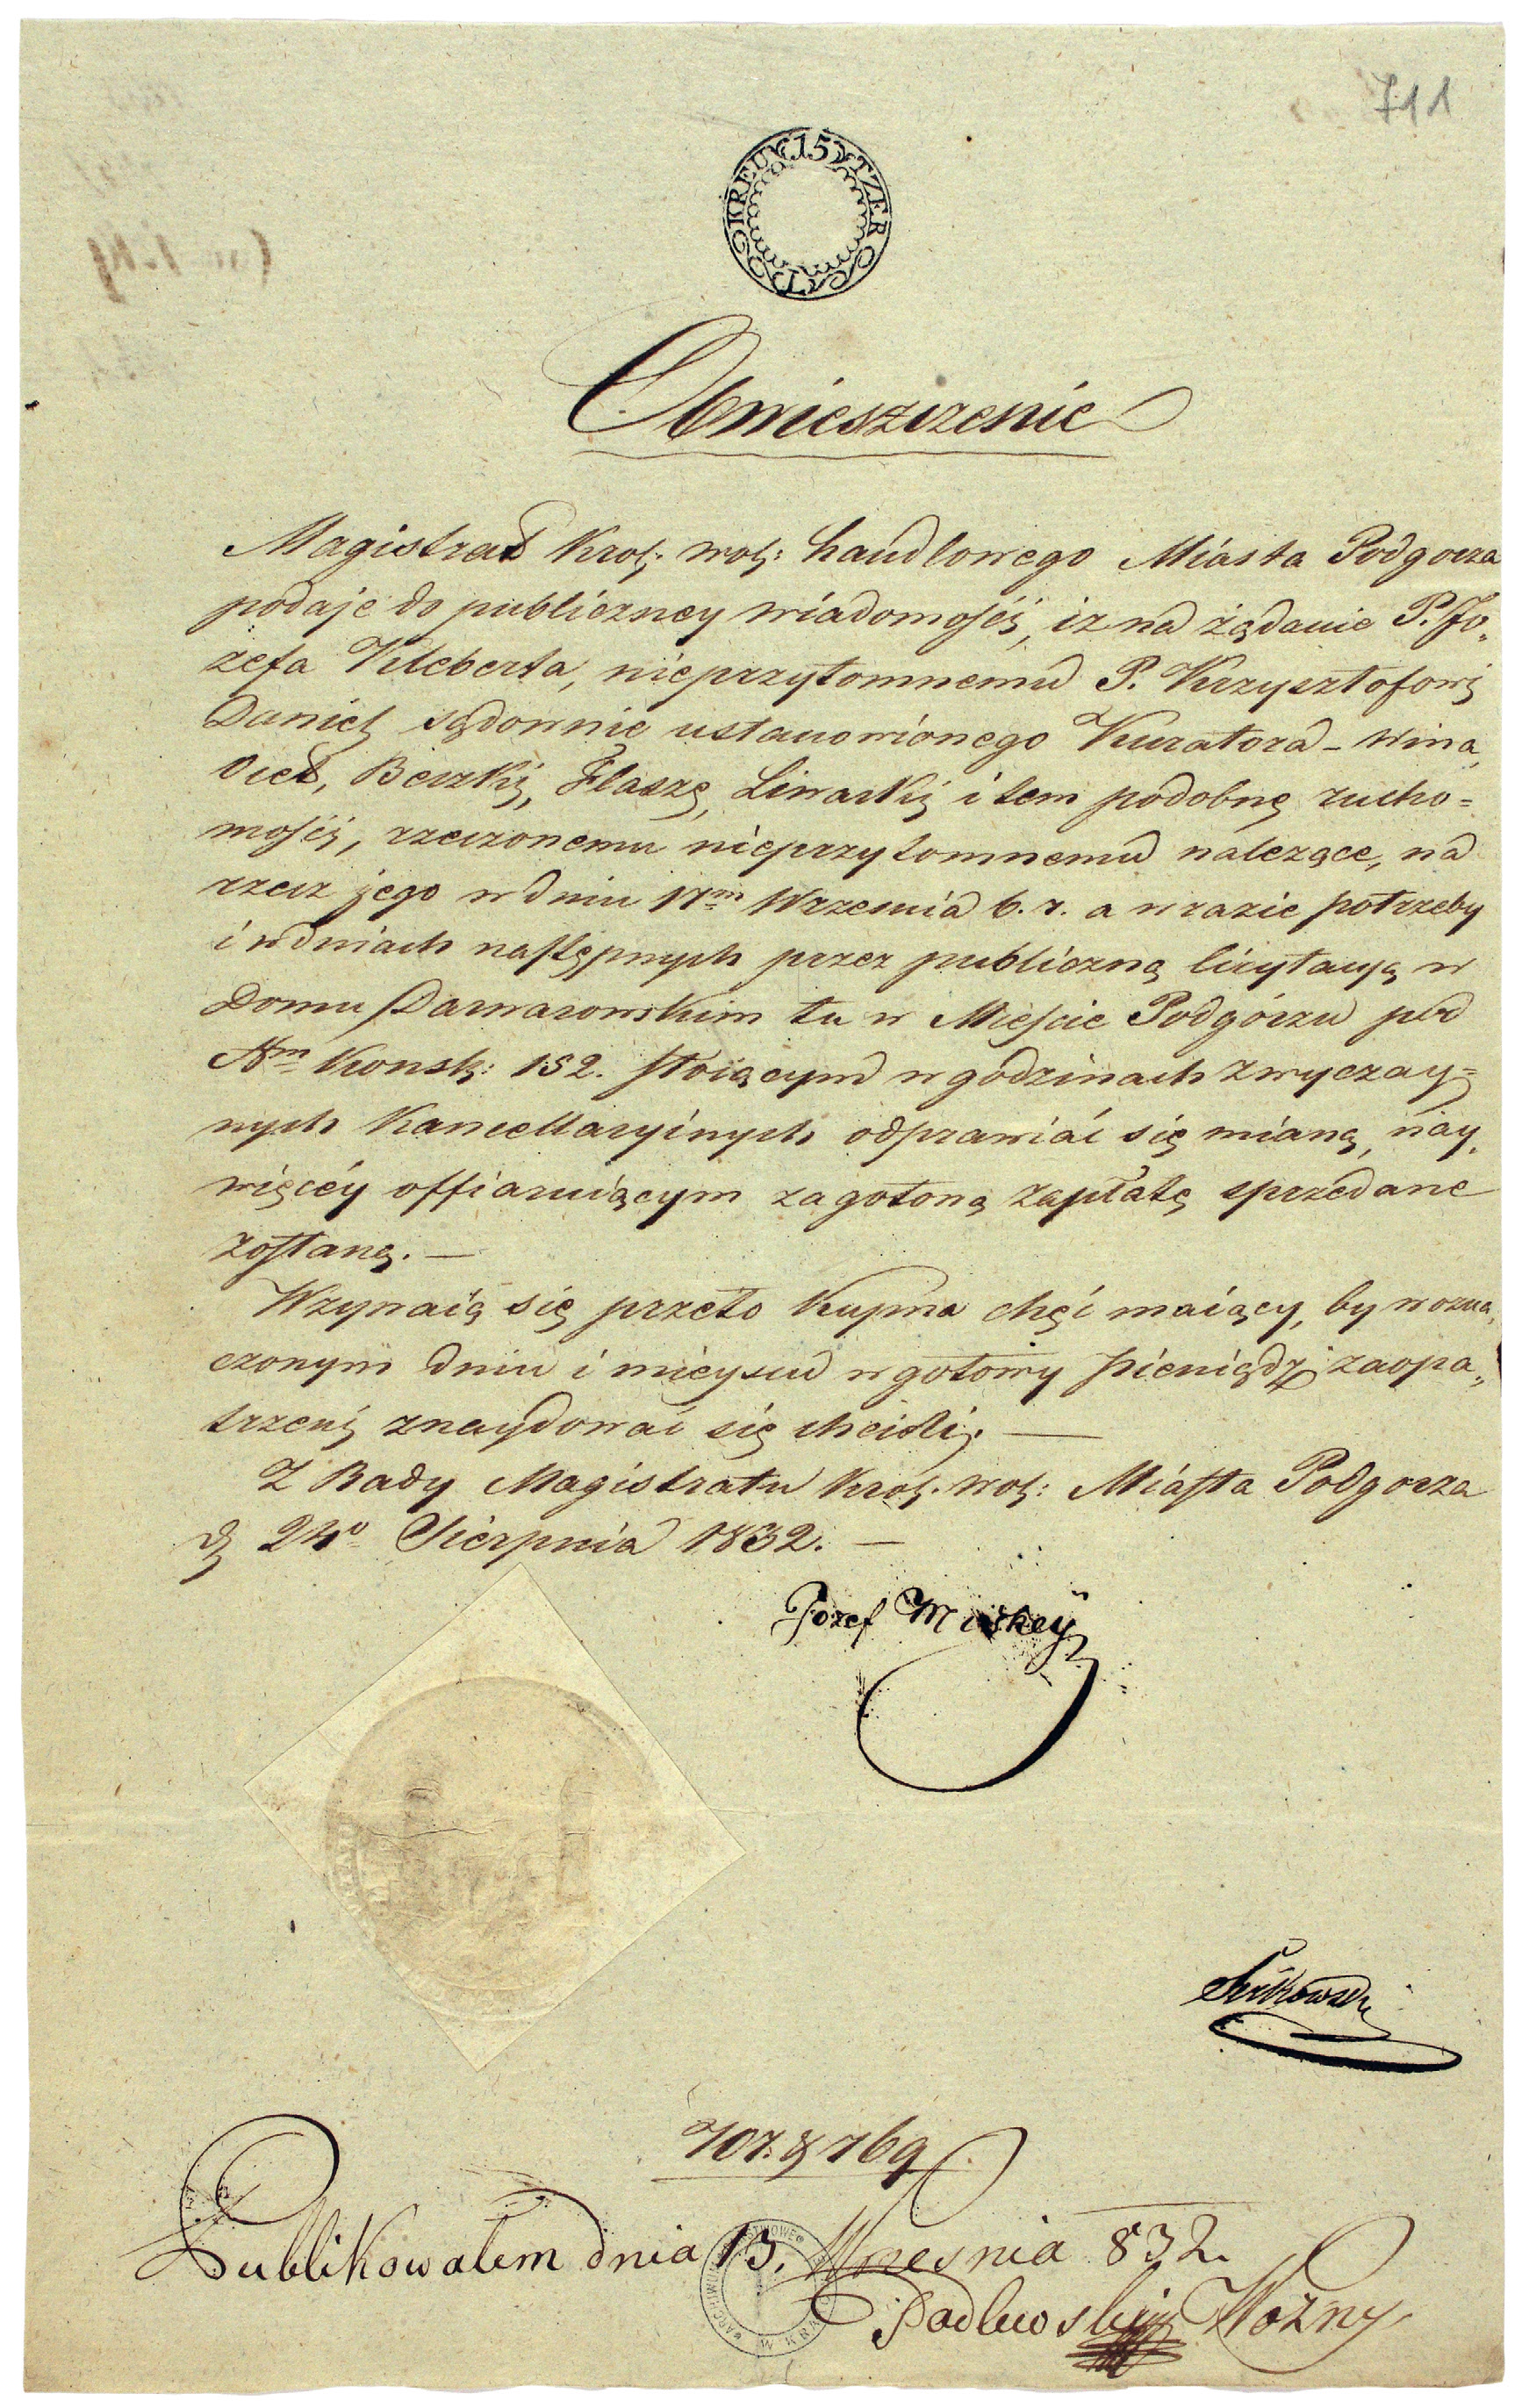 711
15 KREUTZER
Obwieszczenie
Magistrat Krol: wol: handlowego Miasta Podgorza
podaje do publiczney wiadomości, iz na żądanie P. Jo„
zefa Kleberta, nieprzytomnemu P. Krzysztofowi
Daniel sądownie ustanowionego Kuratora – Wina,
Ocet, Beczki, Flasze, Liwarki i tem podobne rucho=
mości, rzeczonemu nieprzytomnemu należące, na
rzecz jego w dniu 17m Wrzesnia b. r. a w razie potrzeby
i w dniach następnych przez publiczną licytacyą w
Domu Darwarowskim tu w Mieście Podgórzu pod
Nm Konsk: 152. stoiącym w godzinach zwyczay=
nych Kancellaryinych odprawiać się mianą, nay„
więcéy offiaruiącym za gotową zapłatę sprzedane
zostaną. —
Wzywaią się przeto Kupna chęć maiący, by w ozna„
czonym dniu i mieyscu w gotowy pieniądz zaopa„
trzeni znaydować się chcieli. —
Z Rady Magistratu Krol. wol: Miasta Podgorza
d 24o Sierpnia 1832. —
Jozef
707. & 769
Publikowalem dnia 13. Wrzesnia 832.
Wozny
ARCHIWUM PAŃSTWOWE W KRAKOWIE